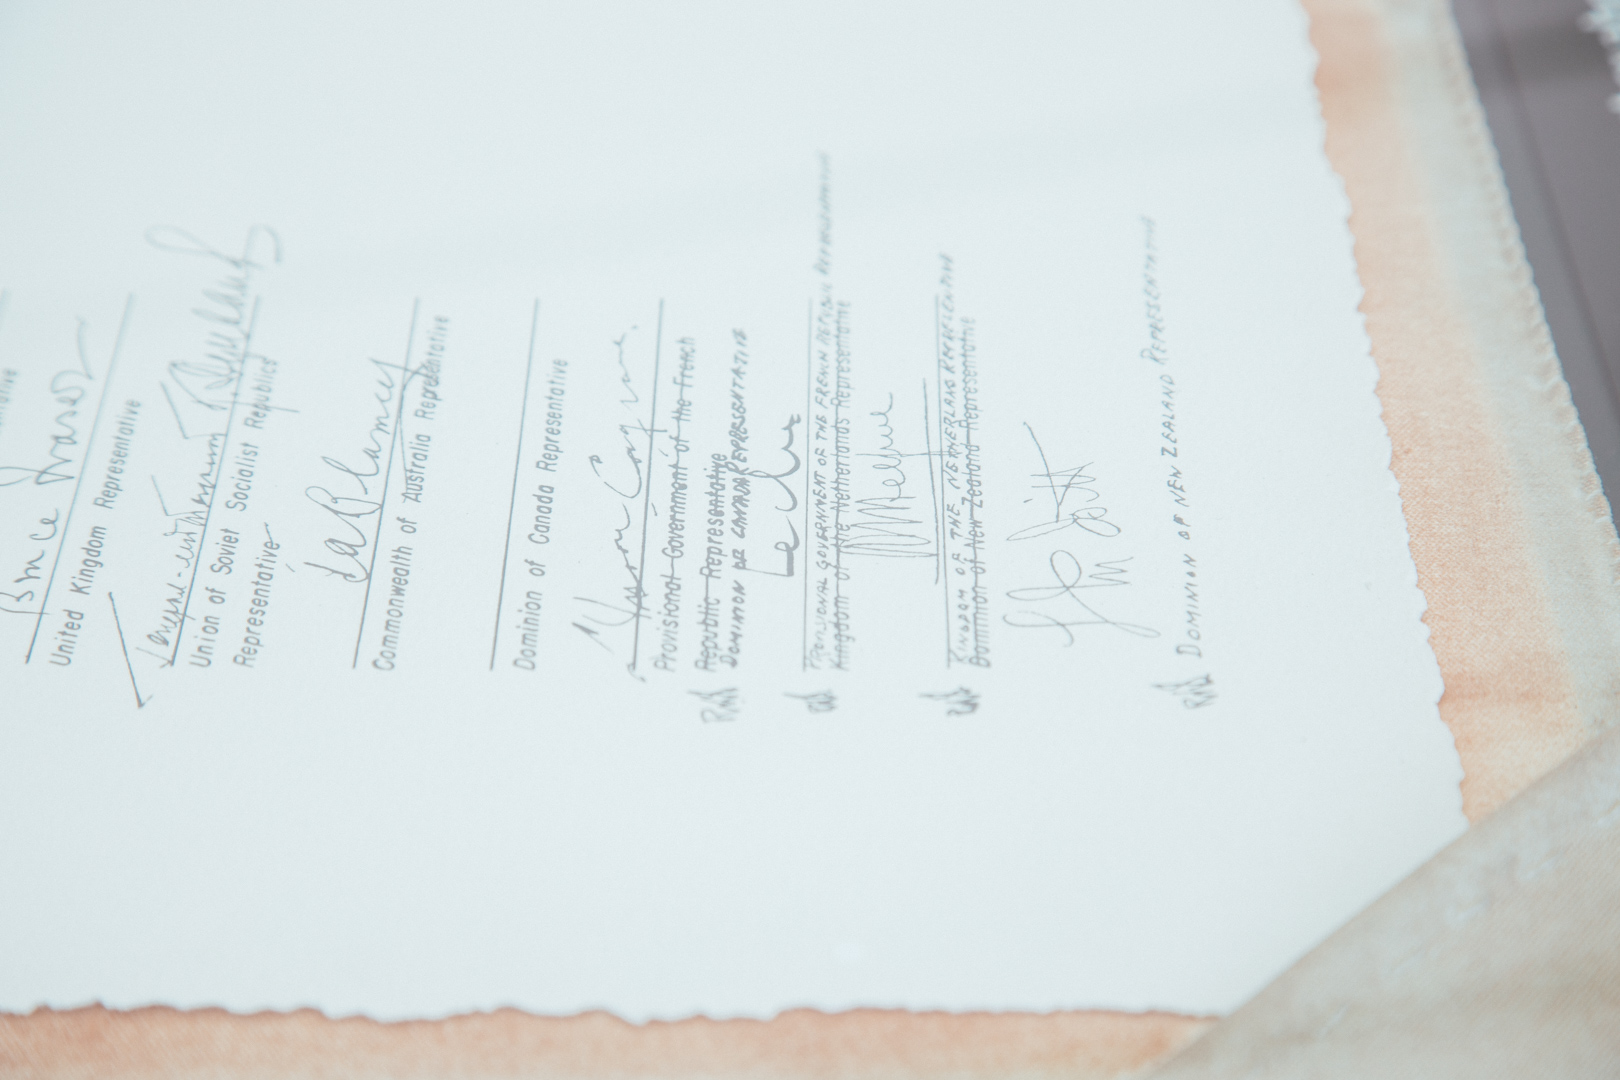 Bruce Fraser
United Kingdom Representative
Union of Soviet Socialist Republics
Representative
T a Blamey
Commonwealth of Australia Representative
Dominion of Canada Representative
Provisional Government of the French
Republic Representative
DOMINION OF CANADA REPRESENTATIVE
Leclerc
PROVISIONAL GOVERNMENT OF THE FRENCH REPUBLIC REPRESENTATIVE
Kingdom of the Netherlands Representative
KINGDOM OF THE NETHERLANDS REPRESENTATIVE
Dominion of New Zealand Representative
DOMINION OF NEW ZEALAND REPRESENTATIVE